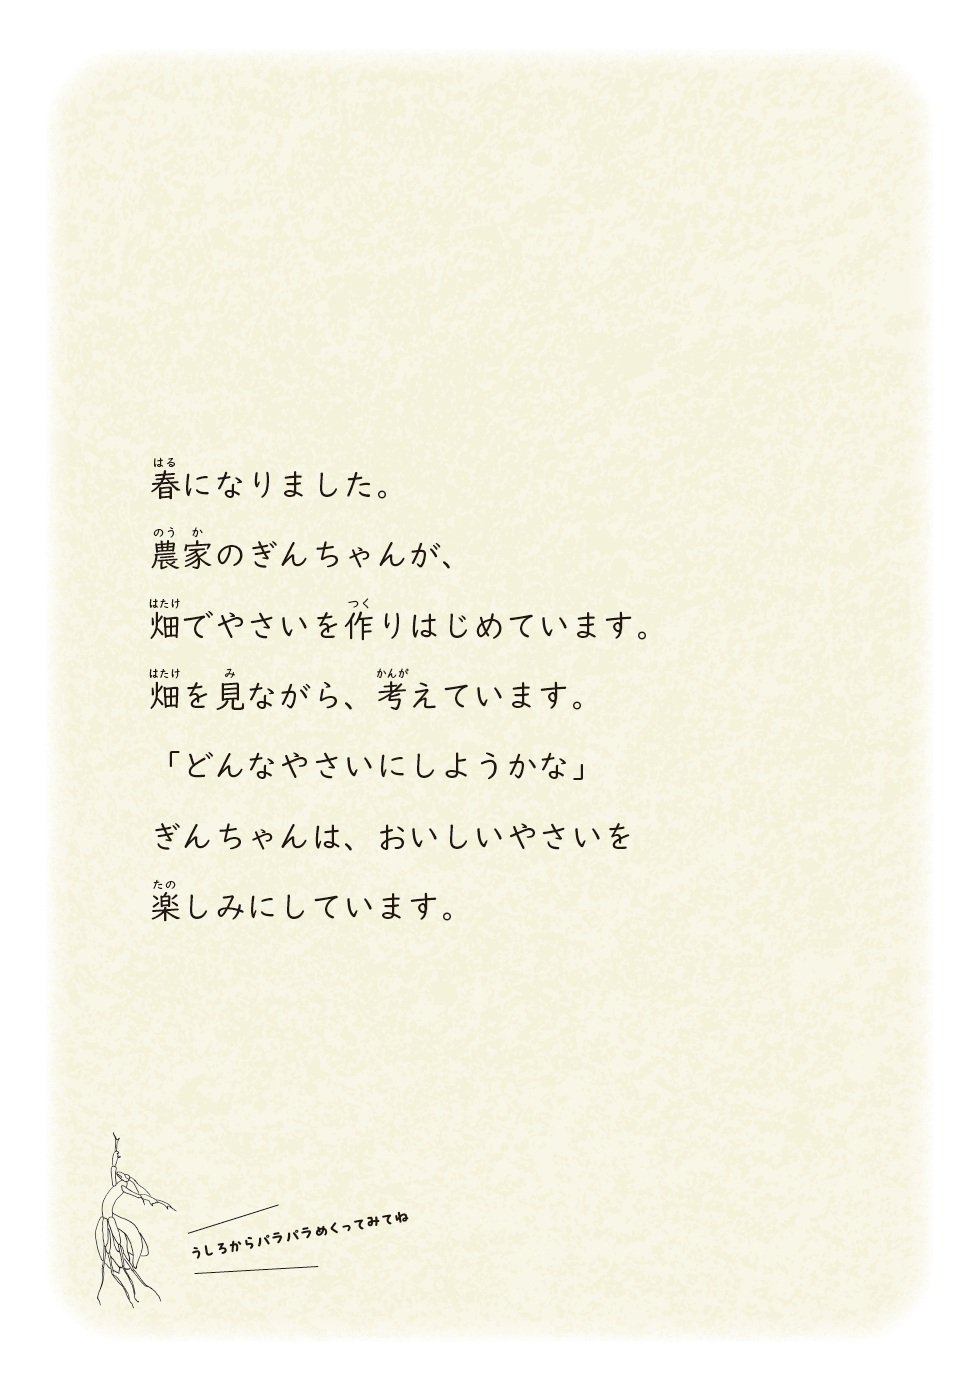 春になりました。
農家のぎんちゃんが、
畑でやさいを作りはじめています。
畑を見ながら、考えています。
「どんなやさいにしようかな」
ぎんちゃんは、おいしいやさいを
楽しみにしています。
うしろからパラパラめくってみてね